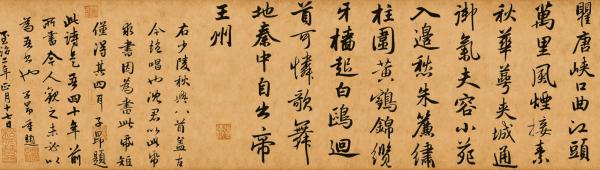 瞿唐峽口曲江頭
萬里風煙接素
秋華萼夾城通
御氣夫容小苑
入邊愁朱簾繡
柱圍黃鶴錦纜
牙檣起白鷗迴
首可憐歌舞
地秦中自古帝
王州
右少陵秋興八首蓋古
今絕唱也沈君以此帋
求書因為書此帋短
僅得其四耳 子昂題
此詩是吾四十年前
所書今人觀之未必以
為吾書也子昂重題
至治二年正月十七日